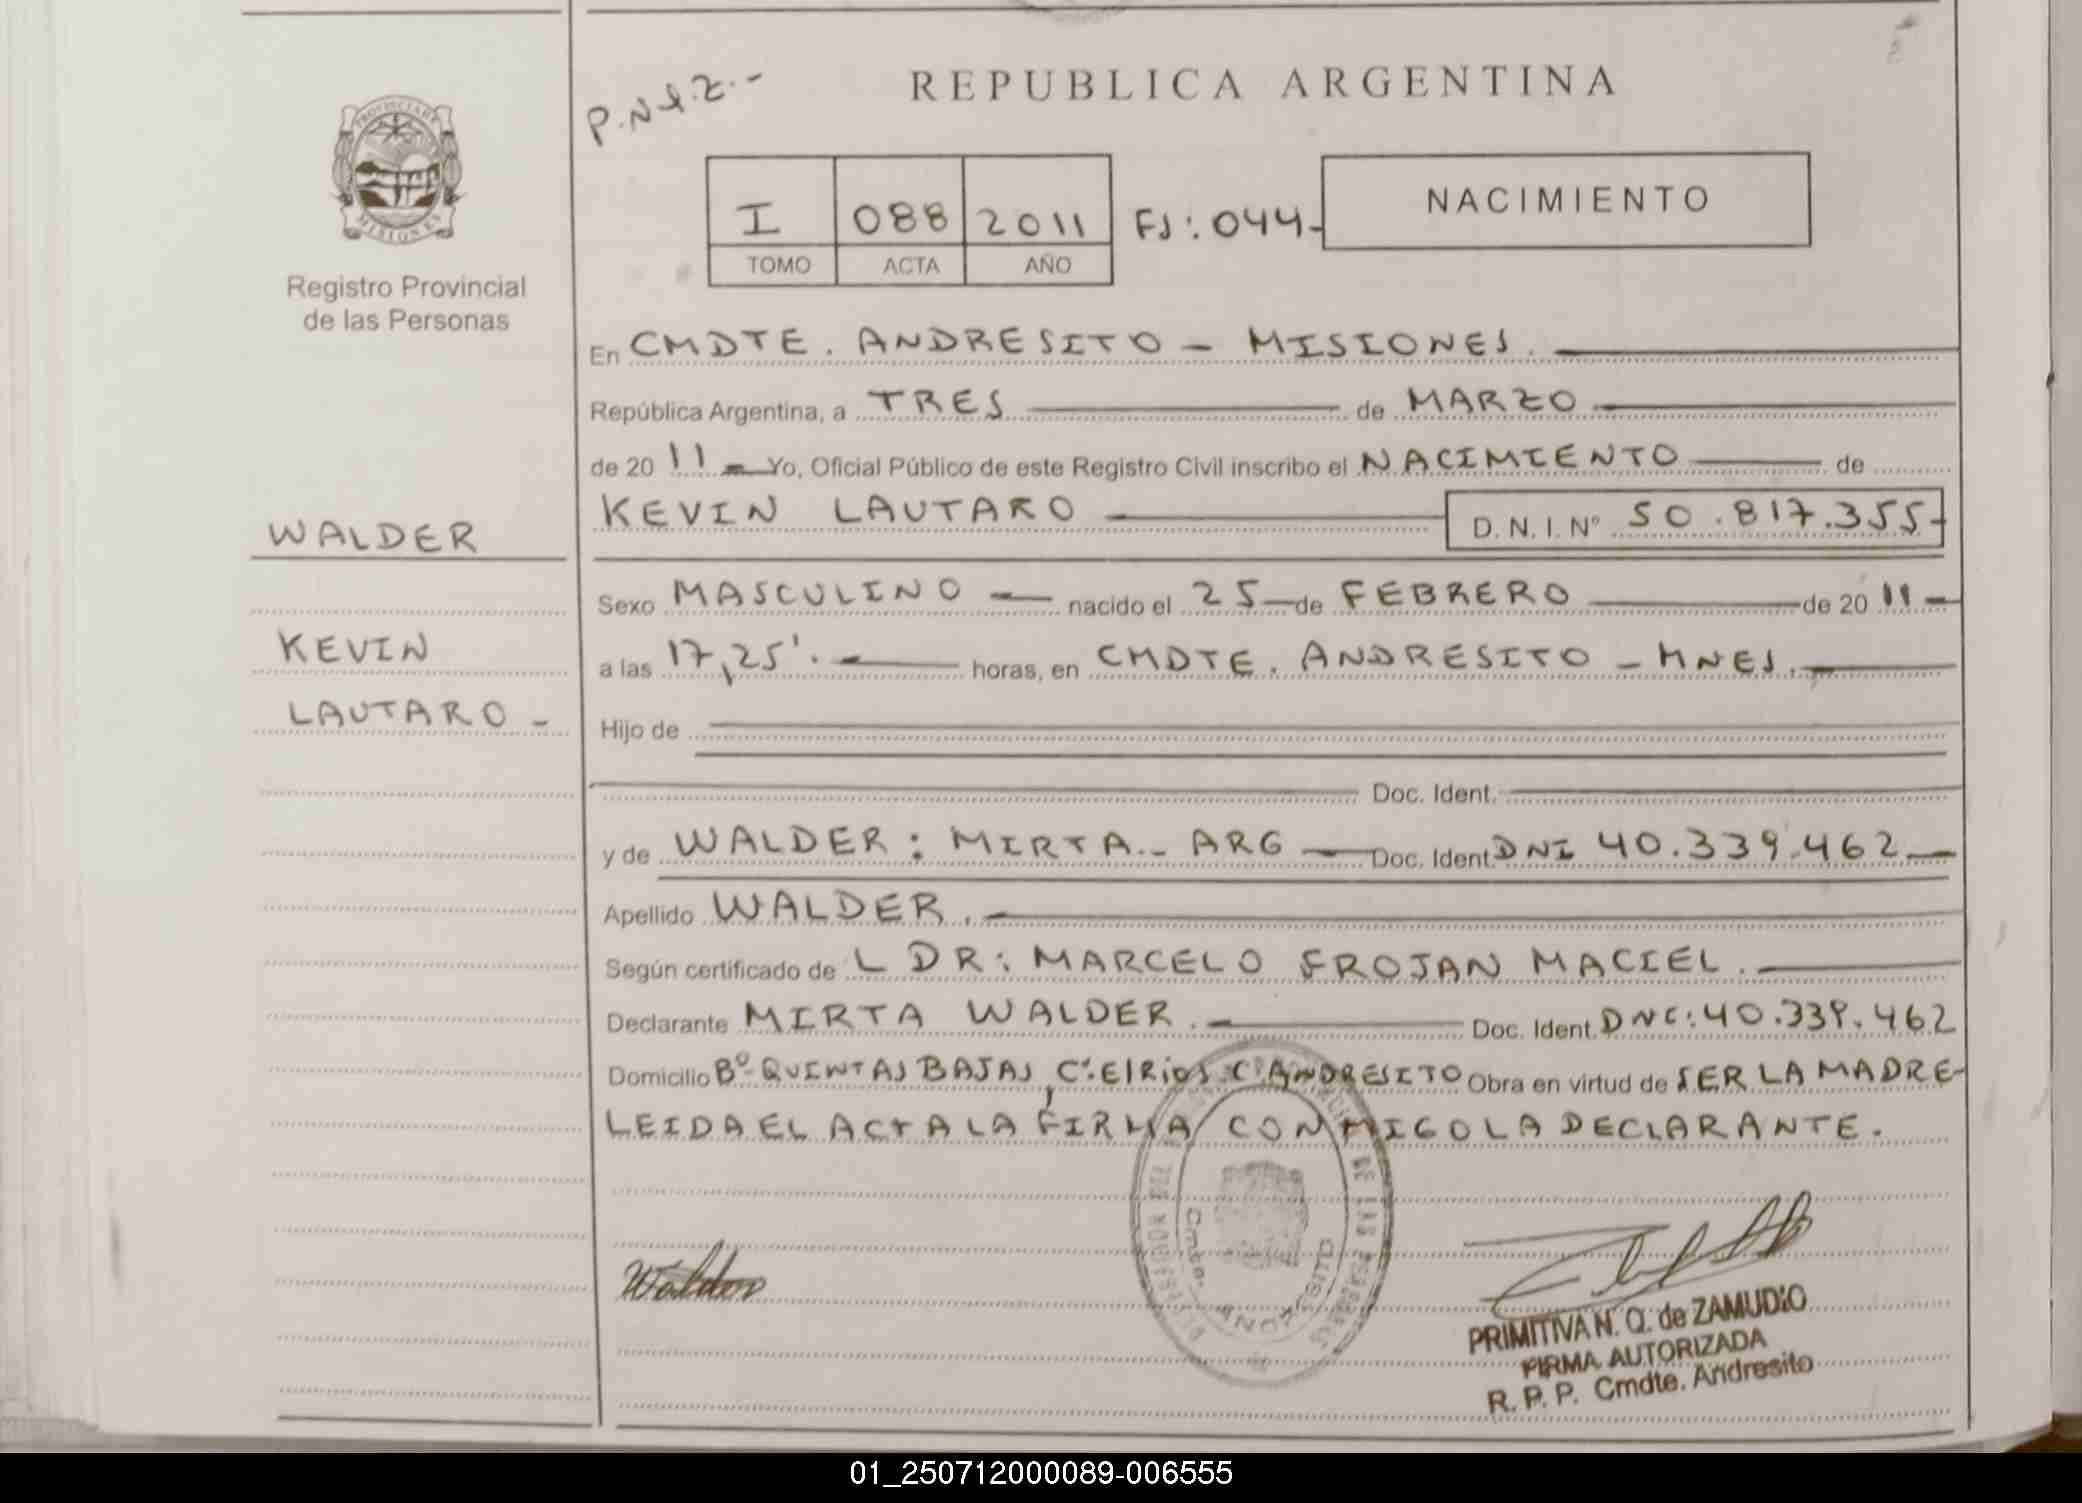 REPUBLICA ARGENTINA
I 088 2011 FJ: 044-
TOMO ACTA AÑO
NACIMIENTO
PROVINCIA DE MISIONES
Registro Provincial
de las Personas
En CMDTE. ANDRESITO - MISIONES.
República Argentina, a TRES de MARZO
de 20 11 Yo, Oficial Público de este Registro Civil inscribo el NACIMIENTO de
KEVIN LAUTARO D.N.I. Nº 50.817.355-
WALDER
KEVIN
LAUTARO -
Sexo MASCULINO nacido el 25 de FEBRERO de 20 11 -
a las 17,25'. horas, en CMDTE. ANDRESITO - MNES.
Hijo de
Doc. Ident.
y de WALDER: MIRTA - ARG Doc. Ident. DNI 40.339.462
Apellido WALDER.
Según certificado de L DR: MARCELO FROJAN MACIEL.
Declarante MIRTA WALDER. Doc. Ident. DNI: 40.339.462
Domicilio Bº QUINTAS BAJAS, Cº El Rios. Cº ANDRESITO Obra en virtud de SER LA MADRE-
LEIDA EL ACTA LA FIRMA CONMIGO LA DECLARANTE.
Walder
Cmte. ANDRESITO
PRIMITIVA N. Q. de ZAMUDIO
FIRMA AUTORIZADA
R. P. P. Cmdte. Andresito
01_250712000089-006555